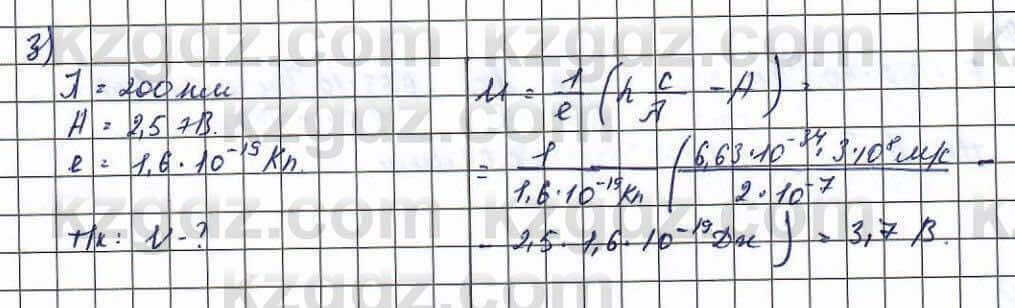 kzgdz.com kzgdz.com
3)
λ = 200 нм
A = 2,5 эВ.
e = 1,6·10⁻¹⁹ Кл.
Т/к: U-?
U = 1/e (h c/λ - A) =
= 1/(1,6·10⁻¹⁹Кл) (6,63·10⁻³⁴·3·10⁸ м/с / 2·10⁻⁷ -
- 2,5·1,6·10⁻¹⁹Дж) = 3,7 В.
kzgdz.com kzgdz.com
kzgdz.com kzgdz.com
kzgdz.com